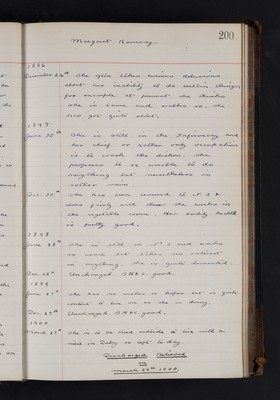 Margaret Ramsay
200
1896
December 24th She often takes curious delusions
about her inability to do certain things,
for example at present she thinks
she is lame and walks so. She
has got quite stout.
1897
June 30th She is still in the Infirmary and
her chief or rather only occupation
is to wash the dishes. She
professes to be unable to do
anything but nevertheless is
rather vain.
Dec. 20th She has been removed to No 2 &
does fairly well there. She works in
the vegetable room. Her bodily health
is pretty good.
1898
June 28th She is still in No 2 and works
as usual but takes no interest
in anything. She is quite demented.
Dec 24th Unchanged. B.H. & C. good.
1899
June 21st She has no wishes or hopes but is quite
content to live on as she is doing.
Dec 27th Unchanged. B.H. & C. good.
1900
March 29th She is to be tried outside to live with a
niece in to-day.
Discharged Relieved
on
March 29th 1900.